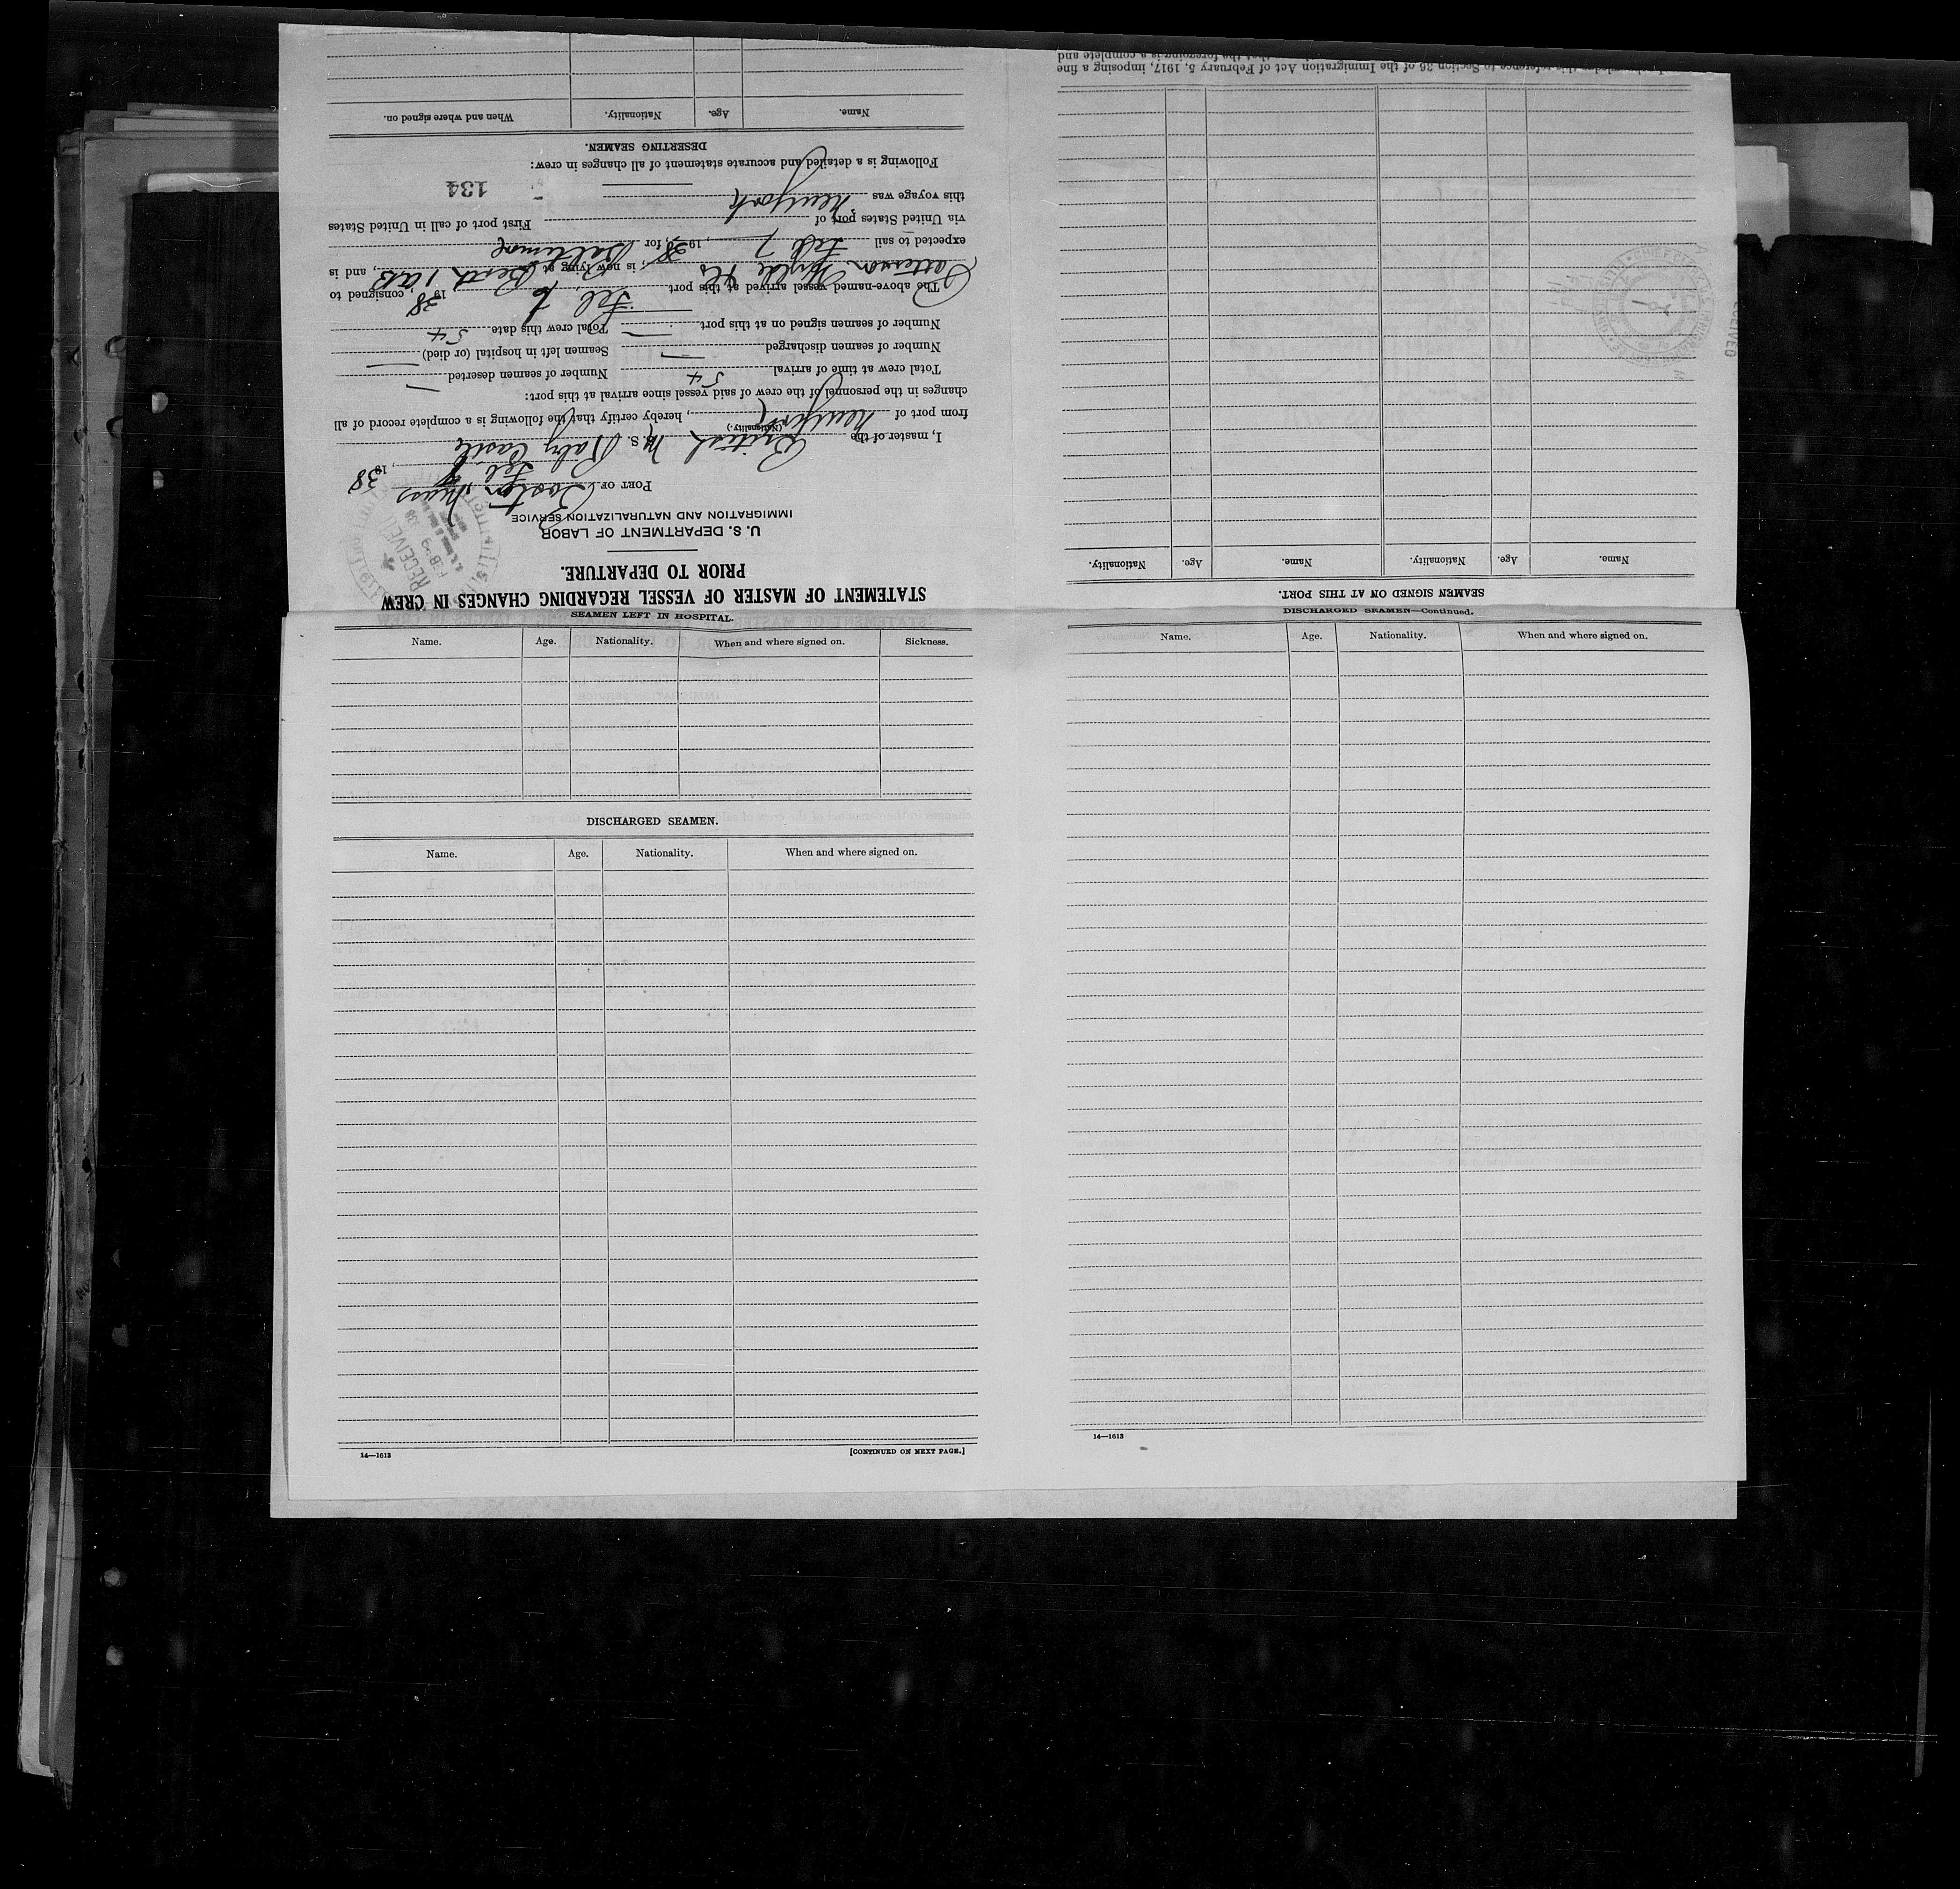 STATEMENT OF MASTER OF VESSEL REGARDING CHANGES IN CREW
PRIOR TO DEPARTURE.
U. S. DEPARTMENT OF LABOR
IMMIGRATION AND NATURALIZATION SERVICE
PORT OF Boston Mass
Feb 8, 1938
I, master of the British M S. Raby Castle
(Nationality.)
from port of New York, hereby certify that the following is a complete record of all
changes in the personnel of the crew of said vessel since arrival at this port:
Total crew at time of arrival 54 Number of seamen deserted —
Number of seamen discharged — Seamen left in hospital (or died) —
Number of seamen signed on at this port — Total crew this date 54
The above-named vessel arrived at this port Feb 6, 1938, consigned to
Patterson Wylde, is now lying at Berth 1, and is
expected to sail Feb 7, 1938, for Baltimore
via United States port of First port of call in United States
this voyage was New York
134
Following is a detailed and accurate statement of all changes in crew:
DESERTING SEAMEN.
Name. Age. Nationality. When and where signed on.
RECEIVED
FEB 9
SEAMEN SIGNED ON AT THIS PORT.
Name. Age. Nationality. Name. Age. Nationality.
Section 36 of the Immigration Act of February 5, 1917, imposing a fine
that the foregoing is a complete and
SEAMEN LEFT IN HOSPITAL.
Name. Age. Nationality. When and where signed on. Sickness.
DISCHARGED SEAMEN.
Name. Age. Nationality. When and where signed on.
14—1613 [CONTINUED ON NEXT PAGE.]
DISCHARGED SEAMEN—Continued.
Name. Age. Nationality. When and where signed on.
14—1613